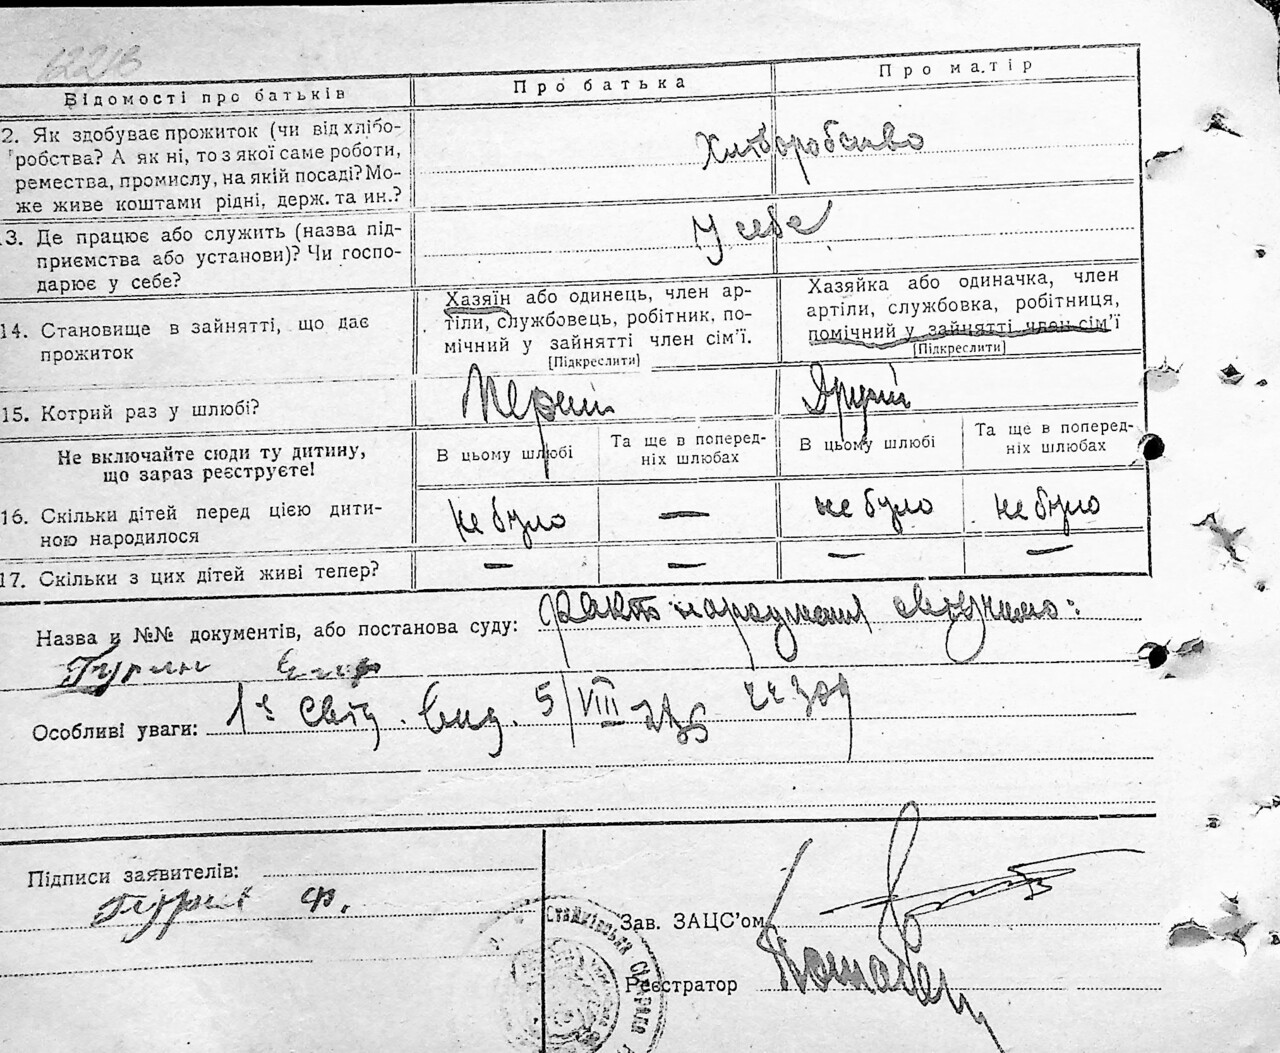 1221в
Відомості про батьків
Про батька
Про матір
2. Як здобуває прожиток (чи від хлібо-
робства? А як ні, то з якої саме роботи,
ремества, промислу, на якій посаді? Мо-
же живе коштами рідні, держ. та ин.?
Хліборобство
3. Де працює або служить (назва під-
приємства або установи)? Чи госпо-
дарює у себе?
У себе
14. Становище в зайнятті, що дає
прожиток
Хазяїн або одинець, член ар-
тіли, службовець, робітник, по-
мічний у зайнятті член сім'ї.
[Підкреслити]
Хазяйка або одиначка, член
артіли, службовка, робітниця,
помічний у зайнятті член сім'ї
[Підкреслити]
15. Котрий раз у шлюбі?
Перший
Другий
Не включайте сюди ту дитину,
що зараз реєструєте!
В цьому шлюбі
Та ще в поперед-
ніх шлюбах
В цьому шлюбі
Та ще в поперед-
ніх шлюбах
16. Скільки дітей перед цією дити-
ною народилося
не було
—
не було
не було
17. Скільки з цих дітей живі тепер?
—
—
—
—
Назва и №№ документів, або постанова суду:
народження
Гурин
Особливі уваги:
5/VIII
Підписи заявителів:
Ф.
Зав. ЗАЦС'ом
Реєстратор